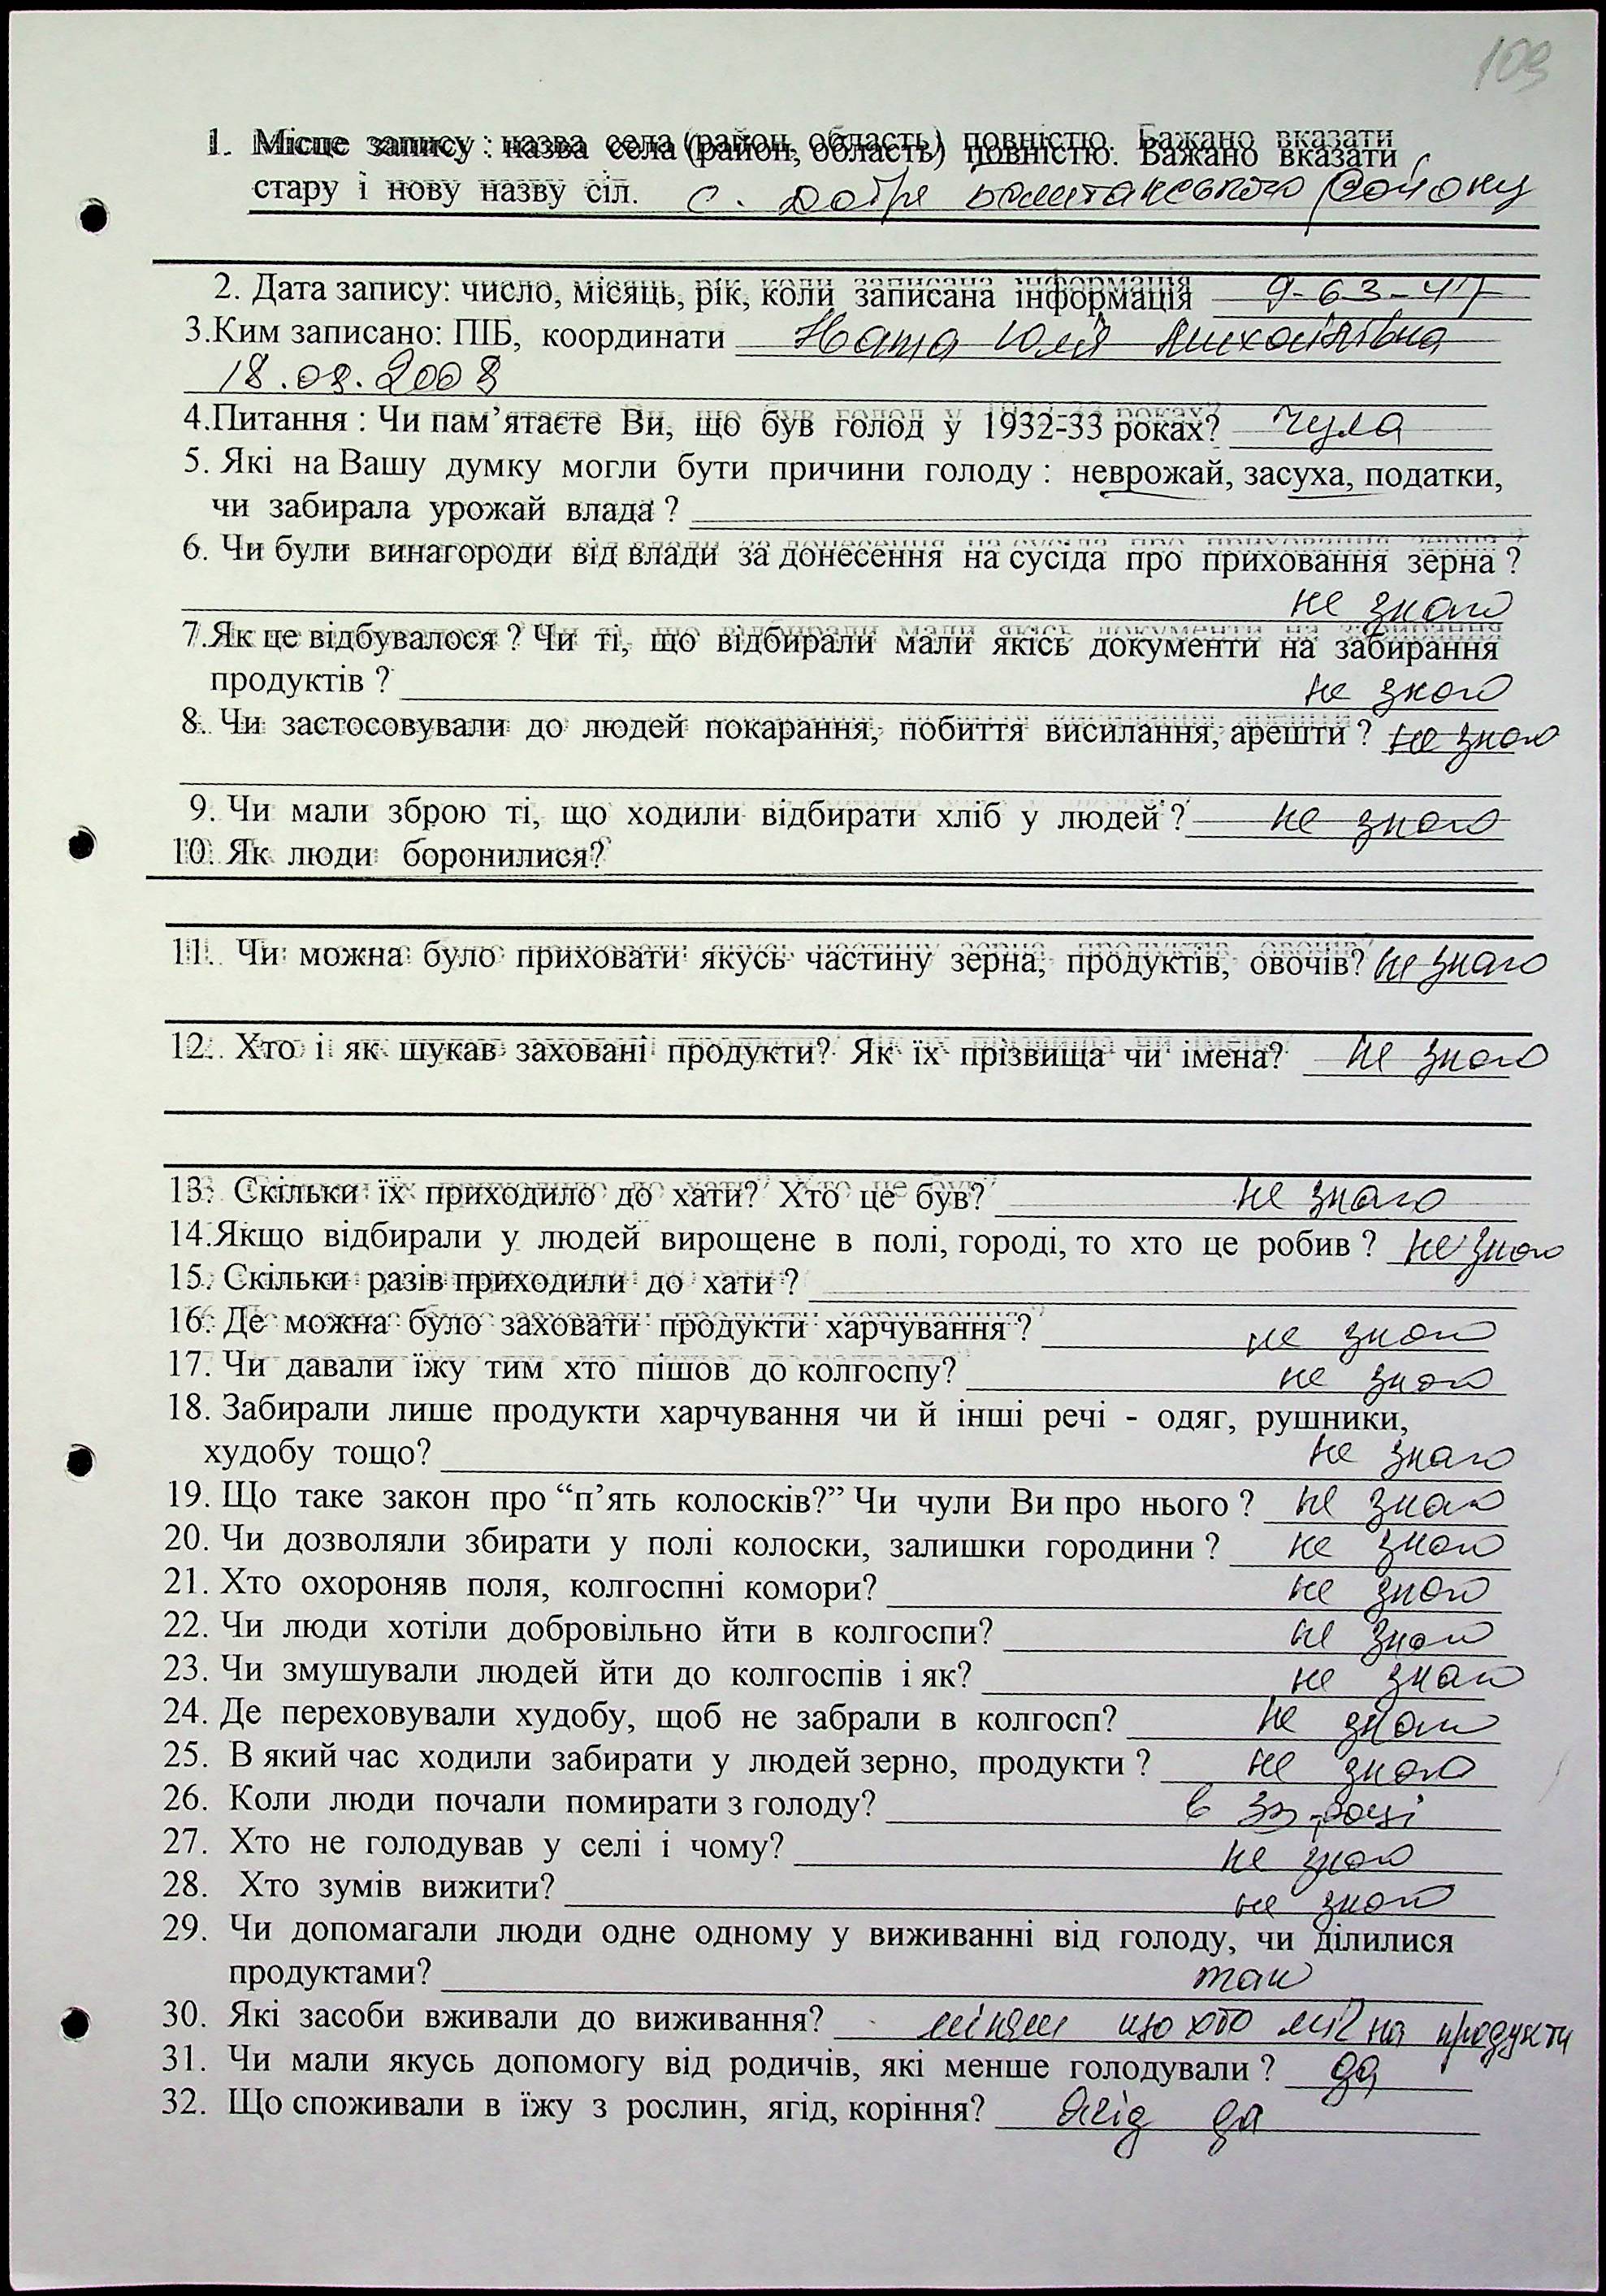 109
1. Місце запису : назва села (район, область) повністю. Бажано вказати
стару і нову назву сіл. с. Добре Баштанського району
2. Дата запису: число, місяць, рік, коли записана інформація 9-63-47
3.Ким записано: ПІБ, координати Юлія Михайлівна
18.08.2008
4.Питання : Чи пам’ятаєте Ви, що був голод у 1932-33 роках? Чула
5. Які на Вашу думку могли бути причини голоду : неврожай, засуха, податки,
чи забирала урожай влада ?
6. Чи були винагороди від влади за донесення на сусіда про приховання зерна ?
не знаю
7.Як це відбувалося ? Чи ті, що відбирали мали якісь документи на забирання
продуктів ? не знаю
8. Чи застосовували до людей покарання, побиття висилання, арешти ? не знаю
9. Чи мали зброю ті, що ходили відбирати хліб у людей ? не знаю
10. Як люди боронилися?
11. Чи можна було приховати якусь частину зерна, продуктів, овочів? не знаю
12. Хто і як шукав заховані продукти? Як їх прізвища чи імена? не знаю
13. Скільки їх приходило до хати? Хто це був? не знаю
14.Якщо відбирали у людей вирощене в полі, городі, то хто це робив ? не знаю
15. Скільки разів приходили до хати ?
16. Де можна було заховати продукти харчування ? не знаю
17. Чи давали їжу тим хто пішов до колгоспу? не знаю
18. Забирали лише продукти харчування чи й інші речі - одяг, рушники,
худобу тощо? не знаю
19. Що таке закон про “п’ять колосків?” Чи чули Ви про нього ? не знаю
20. Чи дозволяли збирати у полі колоски, залишки городини ? не знаю
21. Хто охороняв поля, колгоспні комори? не знаю
22. Чи люди хотіли добровільно йти в колгоспи? не знаю
23. Чи змушували людей йти до колгоспів і як? не знаю
24. Де переховували худобу, щоб не забрали в колгосп? не знаю
25. В який час ходили забирати у людей зерно, продукти ? не знаю
26. Коли люди почали помирати з голоду? в 33-році
27. Хто не голодував у селі і чому? не знаю
28. Хто зумів вижити? не знаю
29. Чи допомагали люди одне одному у виживанні від голоду, чи ділилися
продуктами? так
30. Які засоби вживали до виживання? міняли що хто міг на продукти
31. Чи мали якусь допомогу від родичів, які менше голодували ? да
32. Що споживали в їжу з рослин, ягід, коріння? да